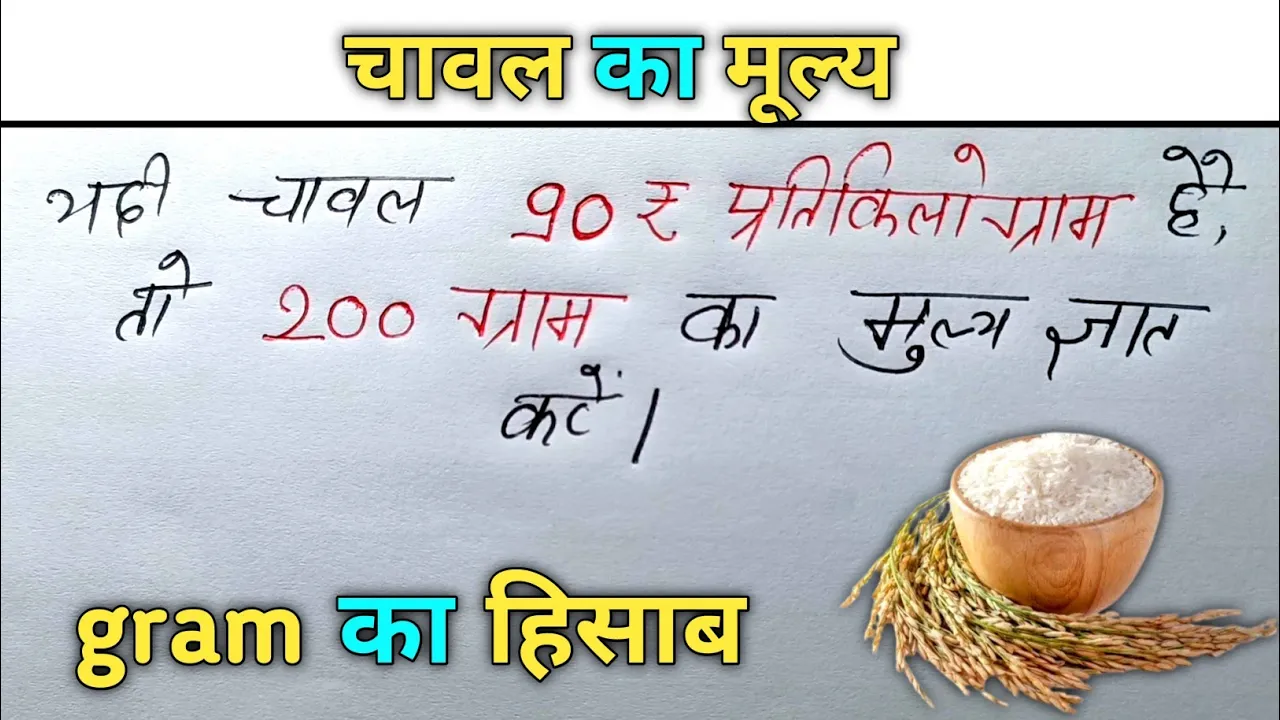 चावल का मूल्य
यदी चावल 90₹ प्रतिकिलोग्राम है,
तो 200 ग्राम का मुल्य ज्ञात
करें।
gram का हिसाब